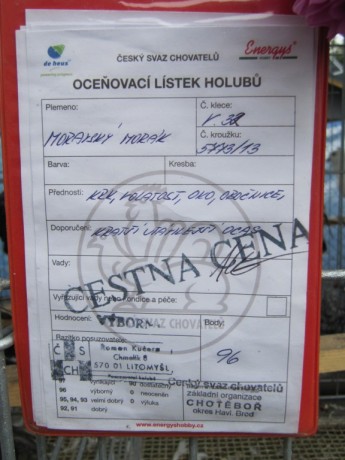 de heus
ČESKÝ SVAZ CHOVATELŮ
Energys
OCEŇOVACÍ LÍSTEK HOLUBŮ
Plemeno:
Č. klece:
V. 32
MORAVSKÝ MORÁK
Č. kroužku:
5773/13
Barva:
Kresba:
Přednosti:
KRK, OKO, OBOČNICE,
Doporučení:
KRATŠÍ OCAS
Vady:
ČESTNÁ CENA
Vylučující vady nebo kondice a péče:
Hodnocení:
VÝBORNÝ
SVAZ CHOVATELŮ
Body:
96
Razítko posuzovatele:
Č S CH
Roman Kučera
570 01 LITOMYŠL
97 vynikající 90 dostatečný
96 výborný 0 neoceněn
95, 94, 93 velmi dobrý 0 výluka
92, 91 dobrý
Český svaz chovatelů
základní organizace
CHOTĚBOŘ
okres Havl. Brod
www.energyshobby.cz